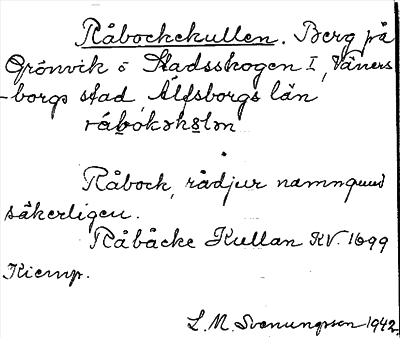 Råbockekullen. Berg på
Grönvik ö Stadsskogen I, Väners-
-borgs stad, Älfsborgs län
råbokəkələn
Råbock, rådjur namngrund
säkerligen.
Råbåcke Kullan KV. 1699
Kiemp.
L. M. Svenungsson 1942.